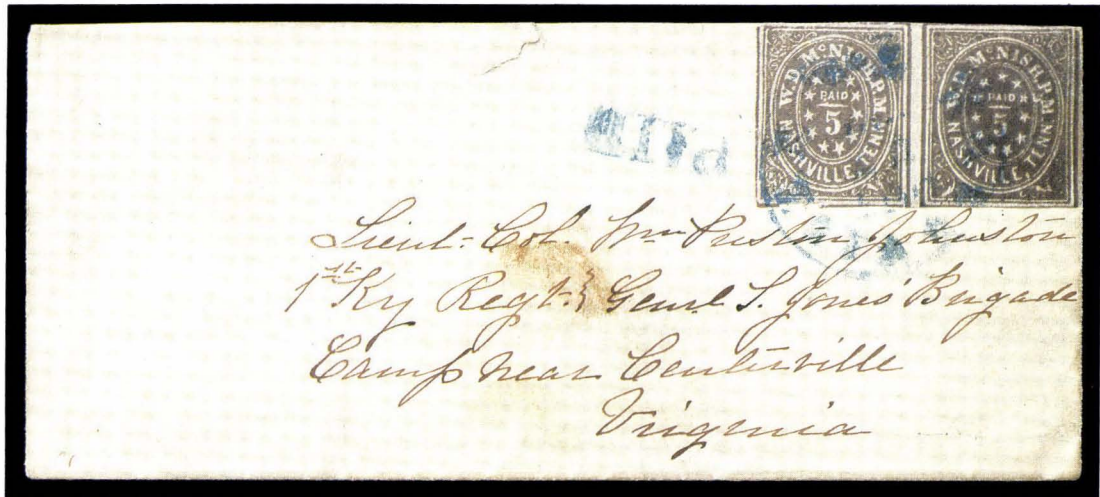 W.D. McNISH. P.M.
PAID
5
NASHVILLE, TENN.
W.D. McNISH. P.M.
PAID
5
NASHVILLE, TENN.
PAID
Lieut- Col. Wm Preston Johnston
1st Ky Regt- Genrl S. Jones' Brigade
Camp near Centerville
Virginia